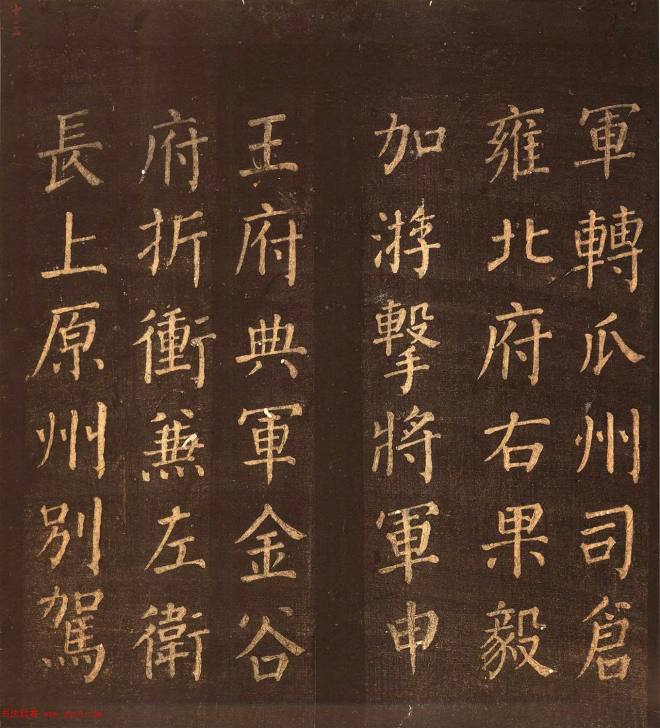 軍轉瓜州司倉
雍北府右果毅
加游擊將軍申
王府典軍金谷
府折衝兼左衛
長上原州別駕